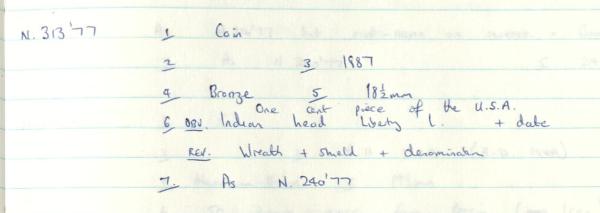 N. 313'77 1 Coin
2 3 1887
4 Bronze 5 18½mm
One cent piece of the U.S.A.
6 OBV. Indian head Liberty L. + date
REV. Wreath + shield + denomination
7. As N. 240'77